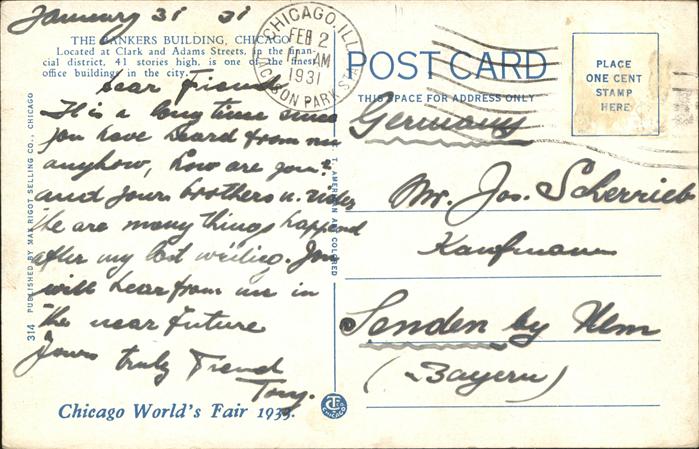 January 31 31
THE BANKERS BUILDING, CHICAGO
Located at Clark and Adams Streets, in the finan-
cial district, 41 stories high, is one of the finest
office buildings in the city.
Dear Friend
It is a long time since
you have heard from me
anyhow, how are you?
and yours brothers u.
the are many things happend
after my last writing. You
will hear from me in
the near future
Yours
truly Friend
Tony.
Chicago World's Fair 1933.
314 PUBLISHED BY MAX RIGOT SELLING CO., CHICAGO
C. T. AMERICAN ART COLORED
CHICAGO, ILL.
FEB 2
AM
1931
JACKSON PARK STA.
POST CARD
THIS SPACE FOR ADDRESS ONLY
PLACE
ONE CENT
STAMP
HERE
Germany
Mr. Jos. Scherrieb
Kaufmann
Senden by Ulm
(Bayern)
CHICAGO